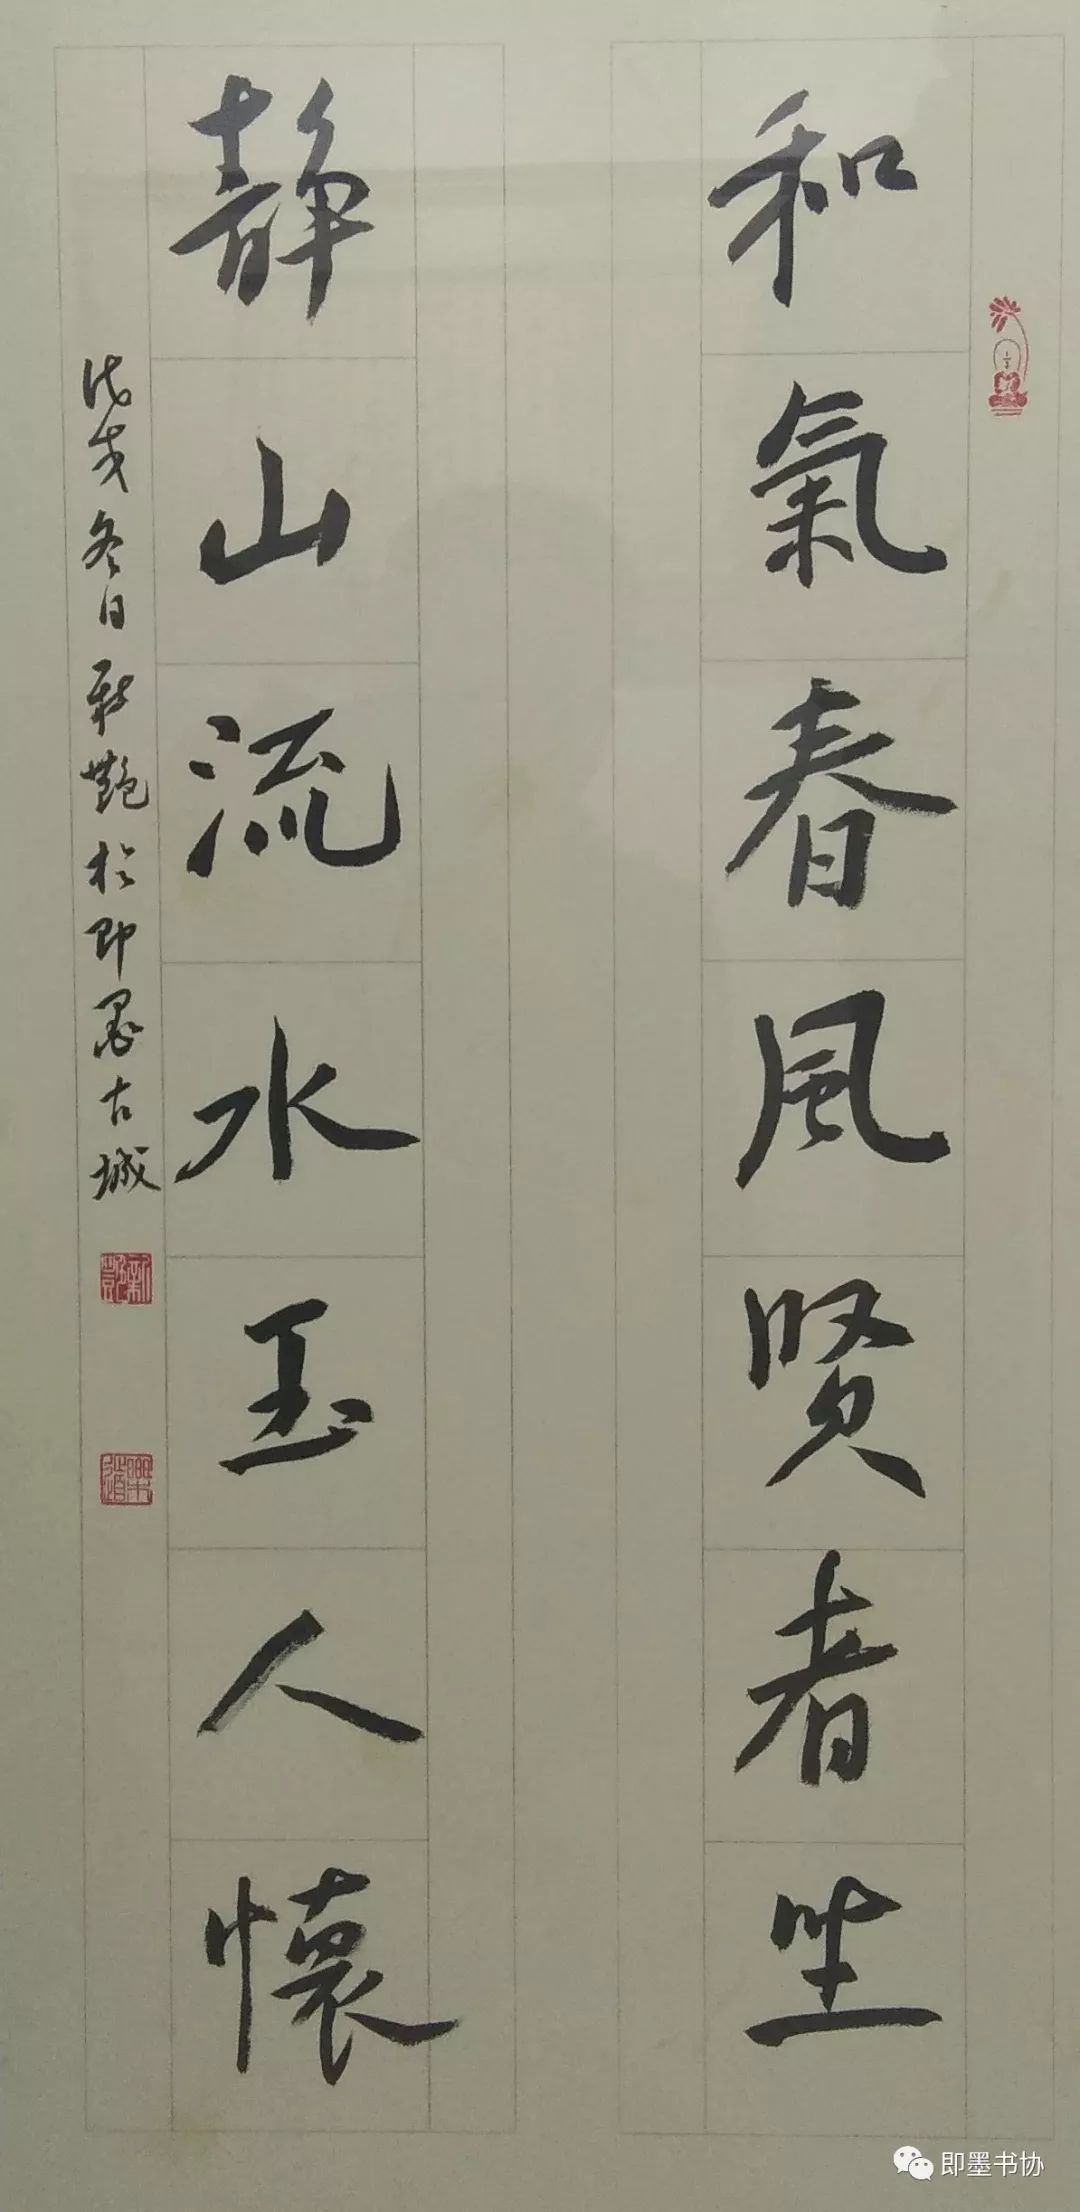 和氣春風賢者坐
静山流水玉人懷
戊戌冬日新艷於即墨古城
即墨书协